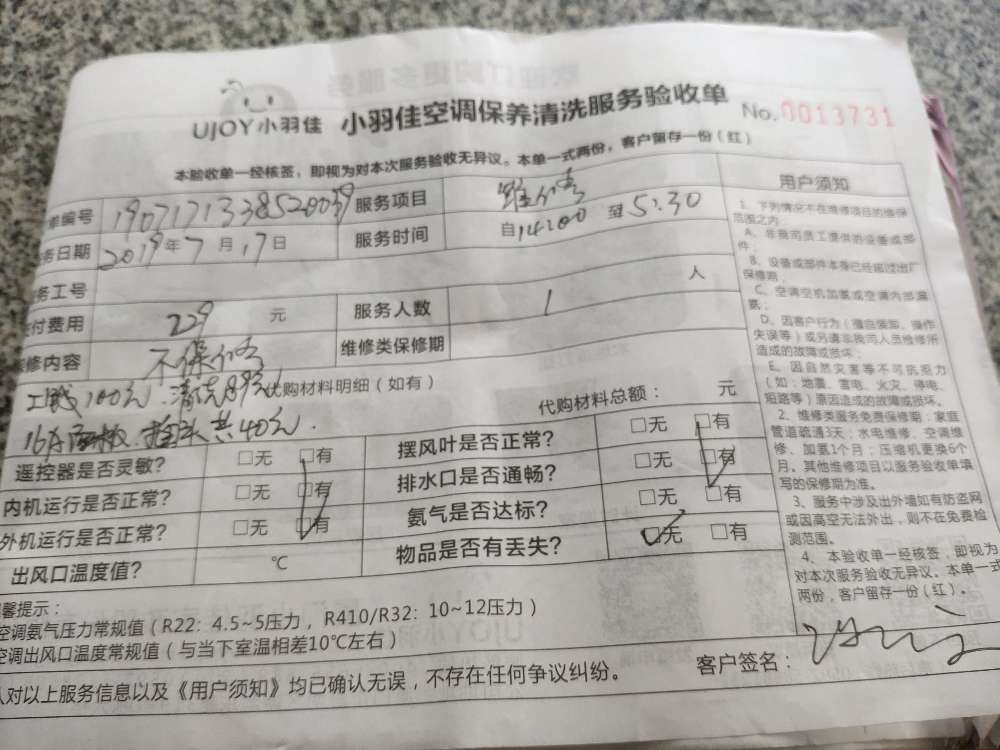 UJOY小羽佳 小羽佳空调保养清洗服务验收单 No.0013731
本验收单一经核签，即视为对本次服务验收无异议。本单一式两份，客户留存一份（红）
单编号 服务项目 维修
务日期 2019年7月17日 服务时间 自14:00至5:30
务工号
应付费用 229 元 服务人数 1 人
维修内容 不保修 维修类保修期
工钱100元.清洗89元 代购材料明细（如有）
16A面板.插头共40元. 代购材料总额： 元
遥控器是否灵敏？ □无 □有 摆风叶是否正常？ □无 □有
内机运行是否正常？ □无 □有 排水口是否通畅？ □无 □有
外机运行是否正常？ □无 □有 氨气是否达标？ □无 □有
出风口温度值？ ℃ 物品是否有丢失？ □无 □有
温馨提示：
空调氨气压力常规值（R22：4.5~5压力，R410/R32：10~12压力）
空调出风口温度常规值（与当下室温相差10℃左右）
认对以上服务信息以及《用户须知》均已确认无误，不存在任何争议纠纷。 客户签名：
用户须知
1、下列情况不在维修项目的维保
范围之内：
A、非我司员工提供的设备或部
件；
B、设备或部件本身已经超过出厂
保修期；
C、空调空机加氨或空调内部漏
氨；
D、因客户行为（擅自领卸、操作
失误等）或另请非我司人员维修所
造成的故障或损坏；
E、因自然灾害等不可抗拒力
（如：地震、雷电、火灾、停电、
短路等）原因造成的故障或损坏。
2、维修类服务免费保修期：家庭
管道疏通3天；水电维修、空调维
修、加氨1个月；压缩机更换6个
月。其他维修项目以服务验收单填
写的保修期为准。
3、服务中涉及出外墙如有防盗网
或因高空无法外出，则不在免费检
测范围。
4、本验收单一经核签，即视为
对本次服务验收无异议。本单一式
两份，客户留存一份（红）。